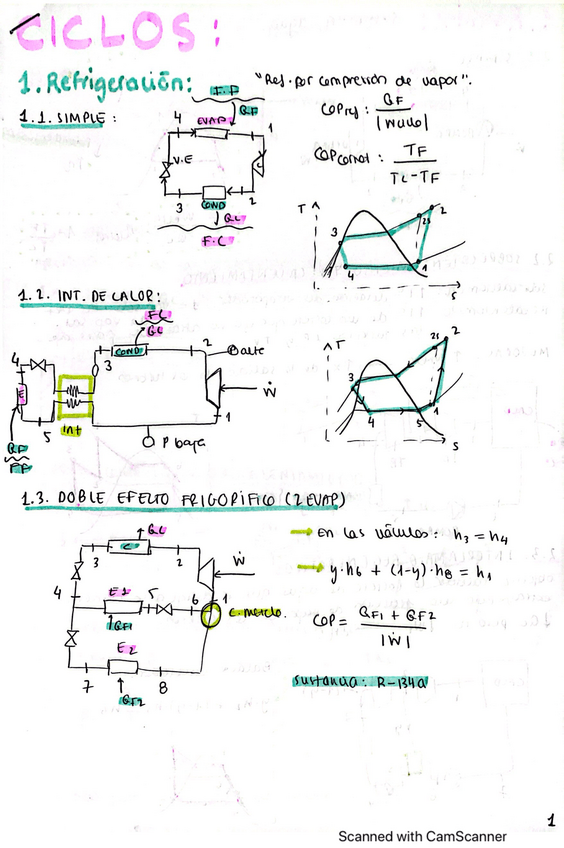 CICLOS:
1. Refrigeración: "Ref. por compresión de vapor".
1.1. SIMPLE:
F.F
QF
EVAP
4
1
V.E
C
3
COND
2
QC
F.C
COPref: QF
|Wciclo|
COPcarnot: TF
TC-TF
T
2
2s
3
4
1
s
1.2. INT. DE CALOR:
FC
QC
COND
2
P alta
3
4
E
Ẇ
1
5
int
P baja
QF
FF
T
2s
2
3
4
5
1
s
1.3. DOBLE EFECTO FRIGORÍFICO (2 EVAP)
QC
3
C
2
Ẇ
4
E1
5
6
1
C. mezcla.
QF1
E2
7
8
QF2
En las válvulas: h3 = h4
y·h6 + (1-y)·h8 = h1
COP = QF1 + QF2
|Ẇ|
sustancia: R-134a
1
Scanned with CamScanner